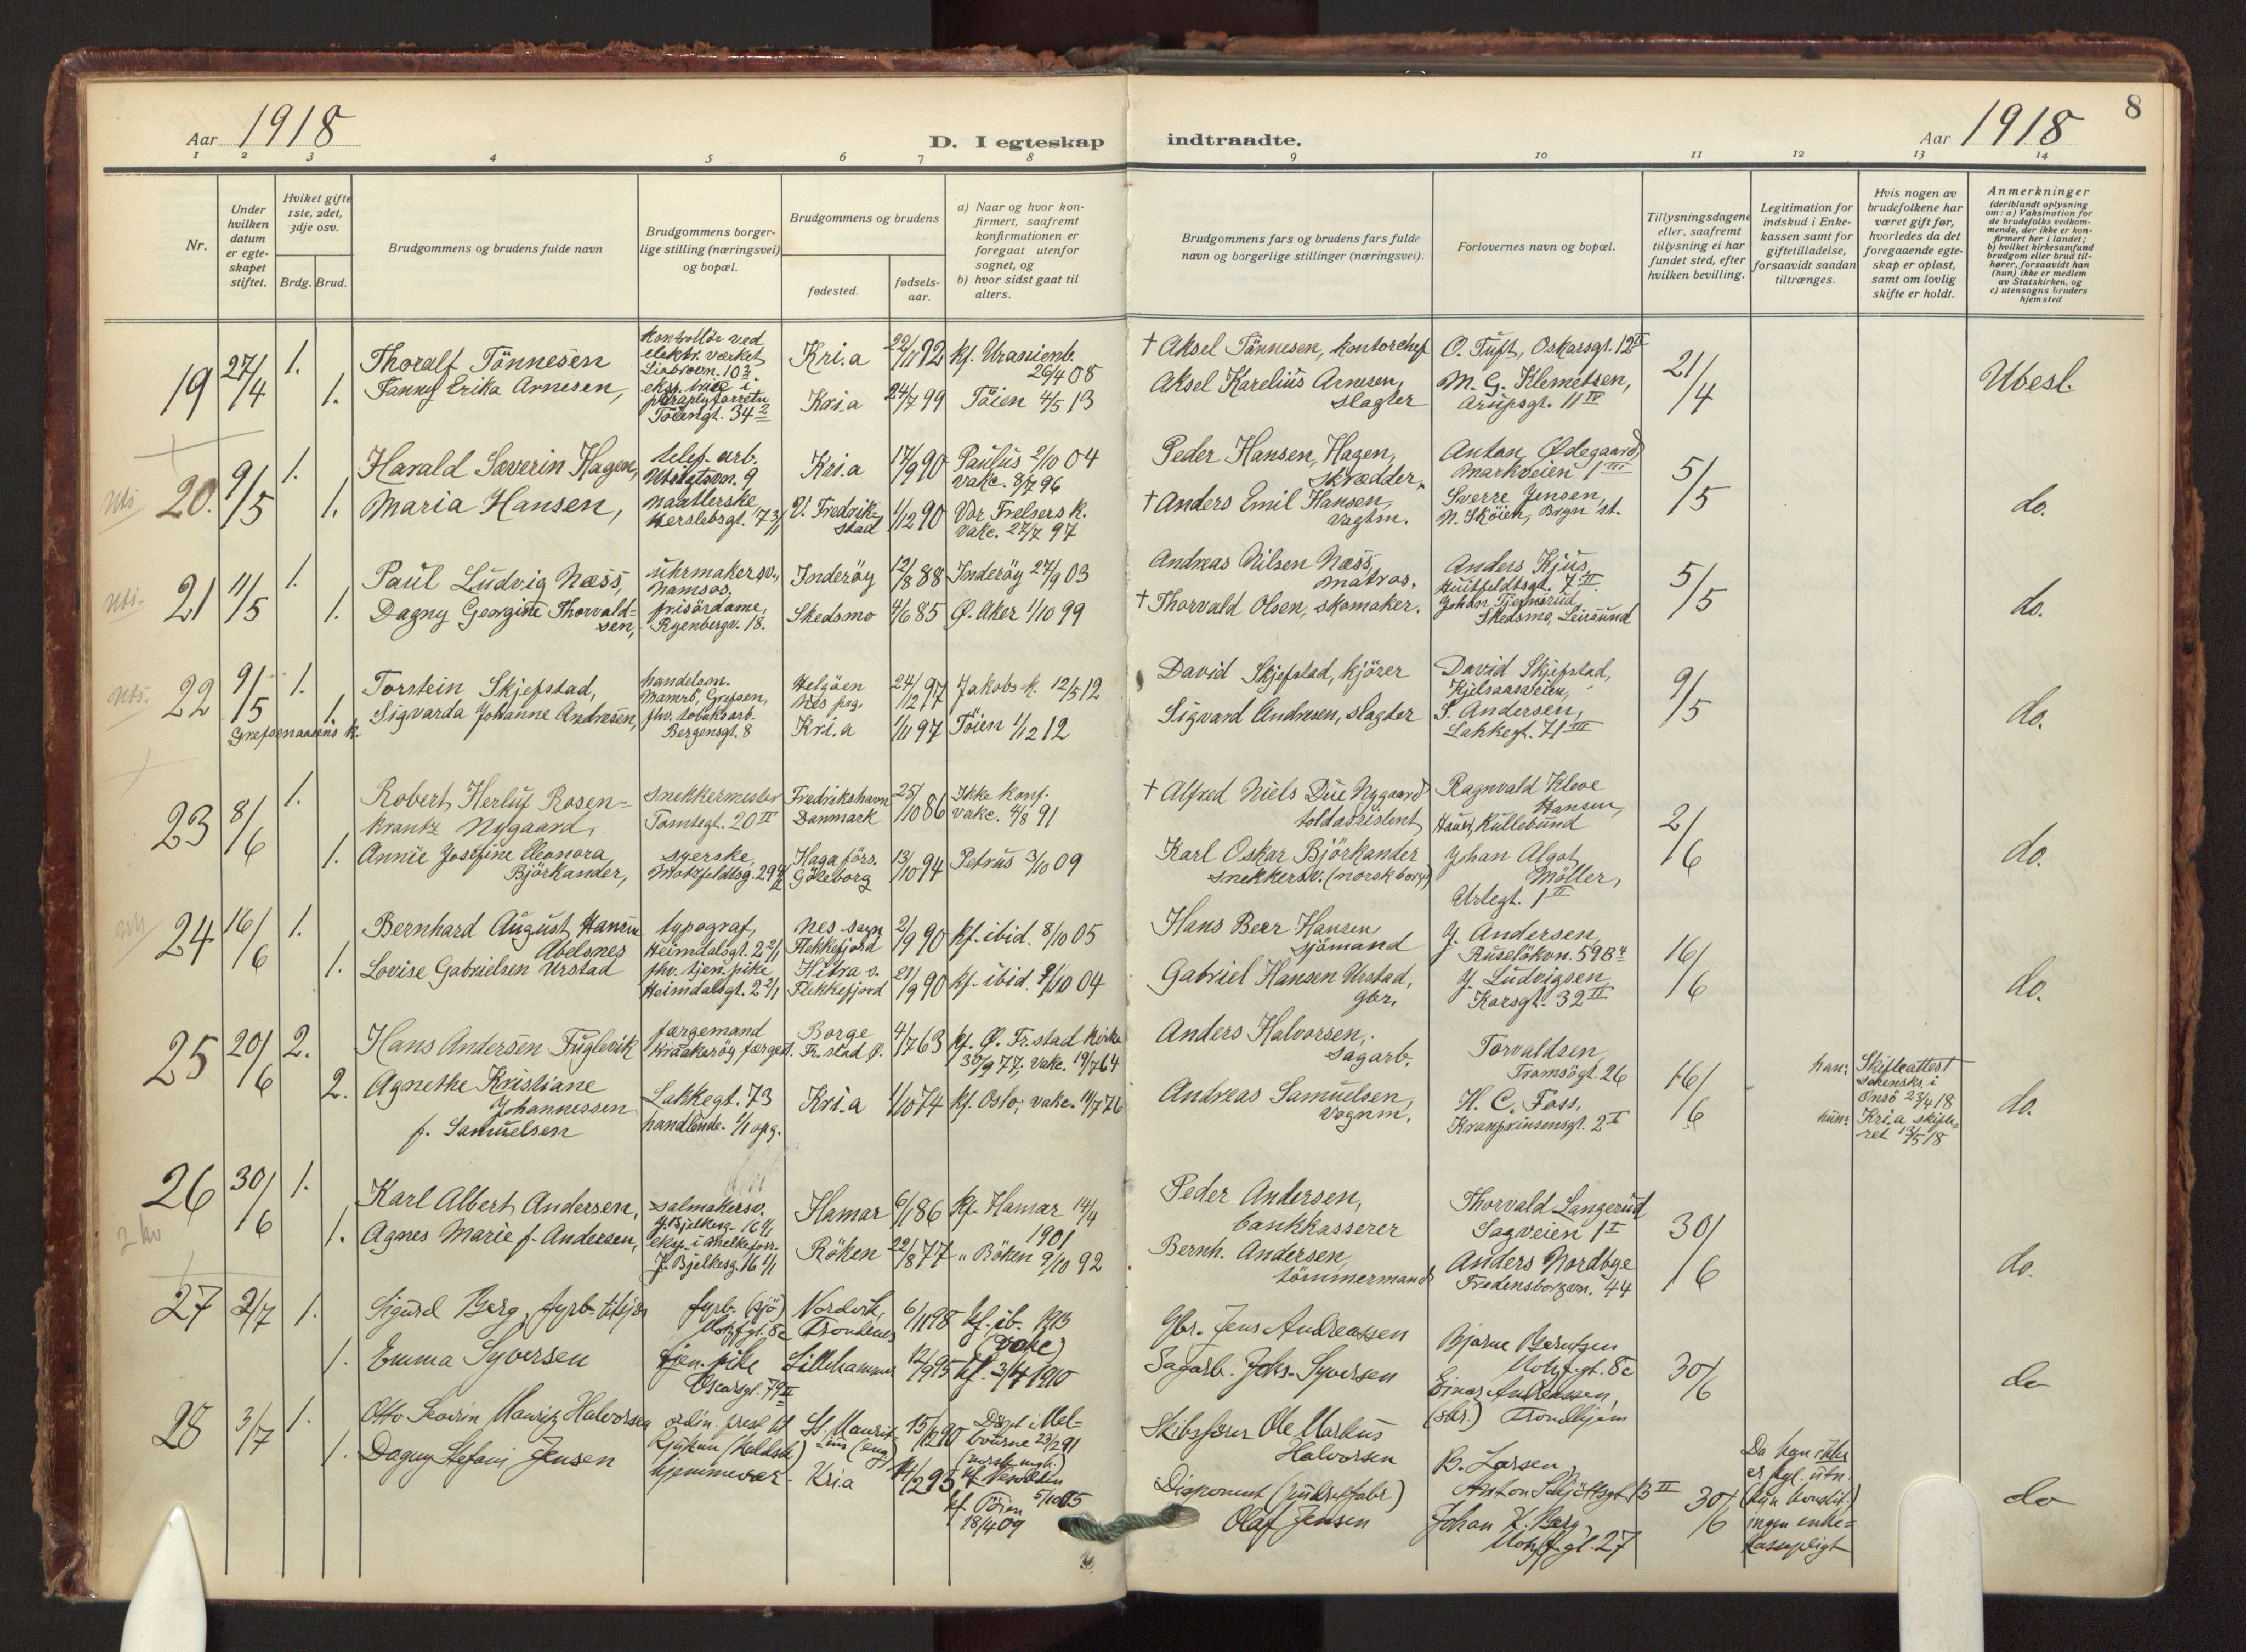 Aar 1918
D. I egteskap indtraadte.
Aar 1918
8
1 2 3 4 5 6 7 8 9 10 11 12 13 14
Nr.
Under hvilken datum er egteskapet stiftet.
Hviket gifte 1ste, 2det, 3dje osv.
Brdg. Brud.
Brudgommens og brudens fulde navn
Brudgommens borgerlige stilling (næringsvei) og bopæl.
Brudgommens og brudens
fødested.
fødselsaar.
a) Naar og hvor konfirmert, saafremt konfirmationen er foregaat utenfor sognet, og
b) hvor sidst gaat til alters.
Brudgommens fars og brudens fars fulde navn og borgerlige stillinger (næringsvei).
Forlovernes navn og bopæl.
Tillysningsdagene eller, saafremt tillysning ei har fundet sted, efter hvilken bevilling.
Legitimation for indskud i Enkekassen samt for giftetilladelse, forsaavidt saadan tiltrænges.
Hvis nogen av brudefolkene har været gift før, hvorledes da det foregaaende egteskap er opløst, samt om lovlig skifte er holdt.
Anmerkninger (deriblandt oplysning om: a) Vaksination for de brudefolks vedkommende, der ikke er konfirmert her i landet; b) hvilket kirkesamfund brudgom eller brud tilhører, forsaavidt han (hun) ikke er medlem av Statskirken, og c) utensogns bruders hjemsted
19 27/4 1. Thoralf Tönnesen kontrollör ved elektr. værket Liabrovn. 10 Kri.a 22/11 92 kf. Uranienb. 26/4 08 † Aksel Tönnesen, kontorchef O. Tuft, Oskarsgt. 12 II 21/4 Ubesl.
1. Fanny Erika Arnesen, eksp. i paraplyforretn. Töiengt. 34 2 Kri.a 24/7 99 Töien 4/5 13 Aksel Karelius Arnesen, slagter M. G. Klemetsen, Arupsgt. 11 IV
20. 9/5 1. Harald Severin Hagen, telef. arb. 9 Kri.a 17/9 90 Paulus 2/10 04 vakc. 8/7 96 Peder Hansen, Hagen, skrædder. Anton Ødegaard Markveien 1 III 5/5 do.
1. Maria Hansen, naatlerske Herslebsgt. 7 3/1 V. Fredrikstad 1/12 90 Vor Frelsers k. vakc. 27/7 97 † Anders Emil Hansen, vagtm. Sverre Jensen, N. Sköien, Bryn st.
21 11/5 1. Paul Ludvig Næss, uhrmakersv., Namsos. Inderöy 12/8 88 Inderöy 27/9 03 Andreas Nilsen Næss, matros. Anders Kjus, Huitfeldtsgt. 7 II 5/5 do.
1. Dagny Georgine Thorvaldsen, frisördame, Ryenbergv. 18. Skedsmo 4/6 85 Ø. Aker 1/10 99 † Thorvald Olsen, skomaker. Johan Tjernsrud, Skedsmo, Leirsund
22 9/5 1. Torstein Skjefstad, handelsm. Grefsen, Helgöen Nes prg. 24/12 97 Jakobs k. 12/5 12 David Skjefstad, kjörer David Skjefstad, Kjelsaasveien, 9/5 do.
1. Sigvarda Johanne Andresen, fhv. tobaksarb. Bergensgt. 8 Kri.a 1/11 97 Töien 1/12 12 Sigvard Andresen, slagter S. Andersen, Lakkegt. 71 III
Grefsenaasens k.
23 8/6 1. Robert Herluf Rosenkrantz Nygaard, snekkermester Tomtegt. 20 II Fredrikshavn Danmark 25/10 86 Ikke konf. vakc. 4/8 91 † Alfred Niels Due Nygaard toldassistent Ragnvald Klove Hansen, Kullebund 2/6 do.
1. Annie Josefine Eleonora Björkander, syerske, Motzfeldtsg. 29 Haga förs. Göteborg 13/10 94 Petrus 3/10 09 Karl Oskar Björkander snekkersv. (norsk borg.) Johan Algot Möller, Urtegt. 1 II
24 16/6 1. Bernhard August Hansen Abelsnes typograf, Heimdalsgt. 2 2/1 Nes sogn Flekkefjord 2/9 90 kf. ibid. 8/10 05 Hans Beer Hansen, sjömand J. Andersen, Ruselökvn. 59 B 4 16/6 do.
1. Lovise Gabrielsen Urstad fhv. tjen. pike Heimdalsgt. 2 2/1 Hitra s. Flekkefjord 21/9 90 kf. ibid. 9/10 04 Gabriel Hansen Urstad, gbr. J. Ludvigsen, Korsgt. 32 II
25 20/6 2. Hans Andersen Fuglevik færgemand Kraakeröy færgest. Borge Fr.stad Ø. 4/7 63 kf. Ø. Fr.stad kirke 30/9 77, vakc. 19/7 64 Anders Halvorsen, sagarb. Torvaldsen, Tromsögt. 26 16/6 han: Skifteattest i Onsö 23/4 18 do.
2. Agnethe Kristiane Johannessen f. Samuelsen Lakkegt. 73 handlende. 1/1 opg. Kri.a 1/10 74 kf. Oslo, vakc. 11/7 76 Andreas Samuelsen, vognm. H. C. Foss, Kronprinsensgt. 2 I hun: Kri.a skifteret 13/5 18
26 30/6 1. Karl Albert Andersen, salmakersv. J. Bjelkesg. 16 1/1 Hamar 6/1 86 kf. Hamar 14/4 1901 Peder Andersen, bankkasserer Thorvald Langerud Sagveien 1 I 30/6 do.
1. Agnes Marie f. Andersen, eksp. i melkeforr. J. Bjelkesg. 16 1/1 Röken 22/8 77 " Röken 9/10 92 Bernh. Andersen, tömmermand Anders Nordbye Fredensborgvn. 44
27 2/7 1. Sigurd Berg, fyrb. tilsjös fyrb. (sjö) Motzf.gt. 8c Nordvik, Trondenes 6/11 98 kf. ib. 1913 (vakc) Gbr. Jens Andreassen Bjarne Berntzen Motzf.gt. 8c 30/6 do
1. Emma Syversen tjen. pike Oscarsgt. 79 II Lillehammer 12/9 95 kf. 3/4 1910 Sagarb. Johs. Syversen Einar Andreassen, (sbr.) Trondhjem
28 3/7 1. Otto Severin Mauritz Halvorsen ordin. prest til Rjukan St. Mauritius (eng) 15/12 90 Döpt i Melbourne 23/2 91 kf. 5/10 05 Skibsförer Ole Markus Halvorsen B. Larsen, Anton Schjöttsgt 13 II 30/6 Da han ikke er kgl. utn. (kun konstit.) ingen enkekassepligt do
1. Dagny Stefani Jensen hjemmevær. Kri.a 14/2 93 kf. Töien 18/4 09 Disponent Olaf Jensen Johan K. Berg, Motzf.gt. 27